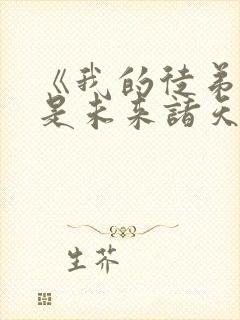 《我的徒弟
是未来諸天
生芥